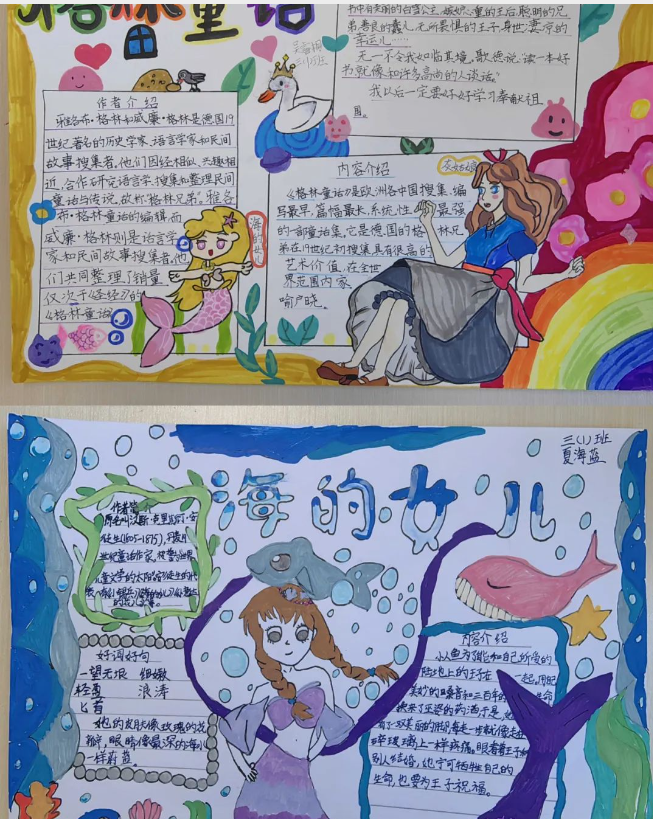 格林童话
书中有美丽的白雪公主、嫉妒、
事、善良的
幸运儿……
无一不令我如临其境,歌德说:“读一本好
书就像和许多高尚的人谈话。”
我以后一定要好好学习奉献祖
国。
三(1)班
作者介绍
雅各布·格林和威廉·格林是德国19
世纪著名的历史学家、语言学家和民间
故事搜集者,他们因经相似,兴趣相
近,合作研究语言学、搜集和整理民间
童话与传说,故称“格林兄弟”。雅各
布·格林童话的编辑,而
威廉·格林则是语言学
家和民间故事搜集者。他
们共同整理了销量
仅次于《圣经》的
《格林童话》
海的女儿
内容介绍
灰姑娘
《格林童话》是欧洲各中国搜集、编
写最早、篇幅最长、系统性最强
的一部童话集,它是德国的格林兄
弟在19世纪初搜集具有很高的
艺术价值,在全世
界范围内家
喻户晓。
三(1)班
夏海蓝
海的女儿
作者简介
世纪童话作家,被誉为世界
儿童文学的太阳
好词好句
一望无垠 细嫩
轻盈 浪涛
匕首
她的皮肤像玫瑰的花
瓣,眼睛像最深的海水
一样蔚蓝
内容介绍
小人鱼为了能和自己所爱的
陆地上的王子在一起,用自己
美妙的嗓音和三百年的生命
换来了巫婆的药,于是,她
有了一双美丽的腿,每走一步就像走在
碎玻璃上一样疼痛。眼看着王子和
别人结婚,她宁可牺牲自己的
生命,也要为王子祝福。